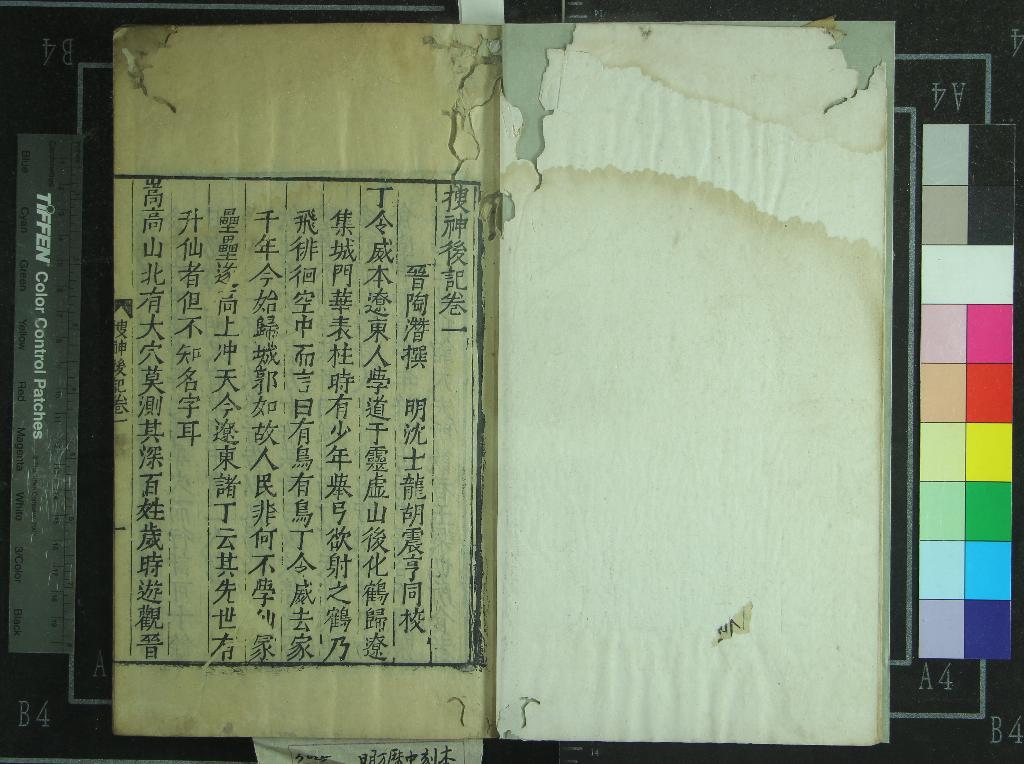 搜神後記卷一
晉陶潛撰　明沈士龍胡震亨同校
丁令威本遼東人學道于靈虛山後化鶴歸遼
集城門華表柱時有少年舉弓欲射之鶴乃
飛徘徊空中而言曰有鳥有鳥丁令威去家
千年今始歸城郭如故人民非何不學仙冢
壘壘遂高上冲天今遼東諸丁云其先世有
升仙者但不知名字耳
嵩高山北有大穴莫測其深百姓歲時遊觀晉
搜神後記卷一
一
B4
A4
TIFFEN Color Control Patches
Blue
Cyan
Green
Yellow
Red
Magenta
White
3/Color
Black
A
B4
A4
B4
明万暦中刻本